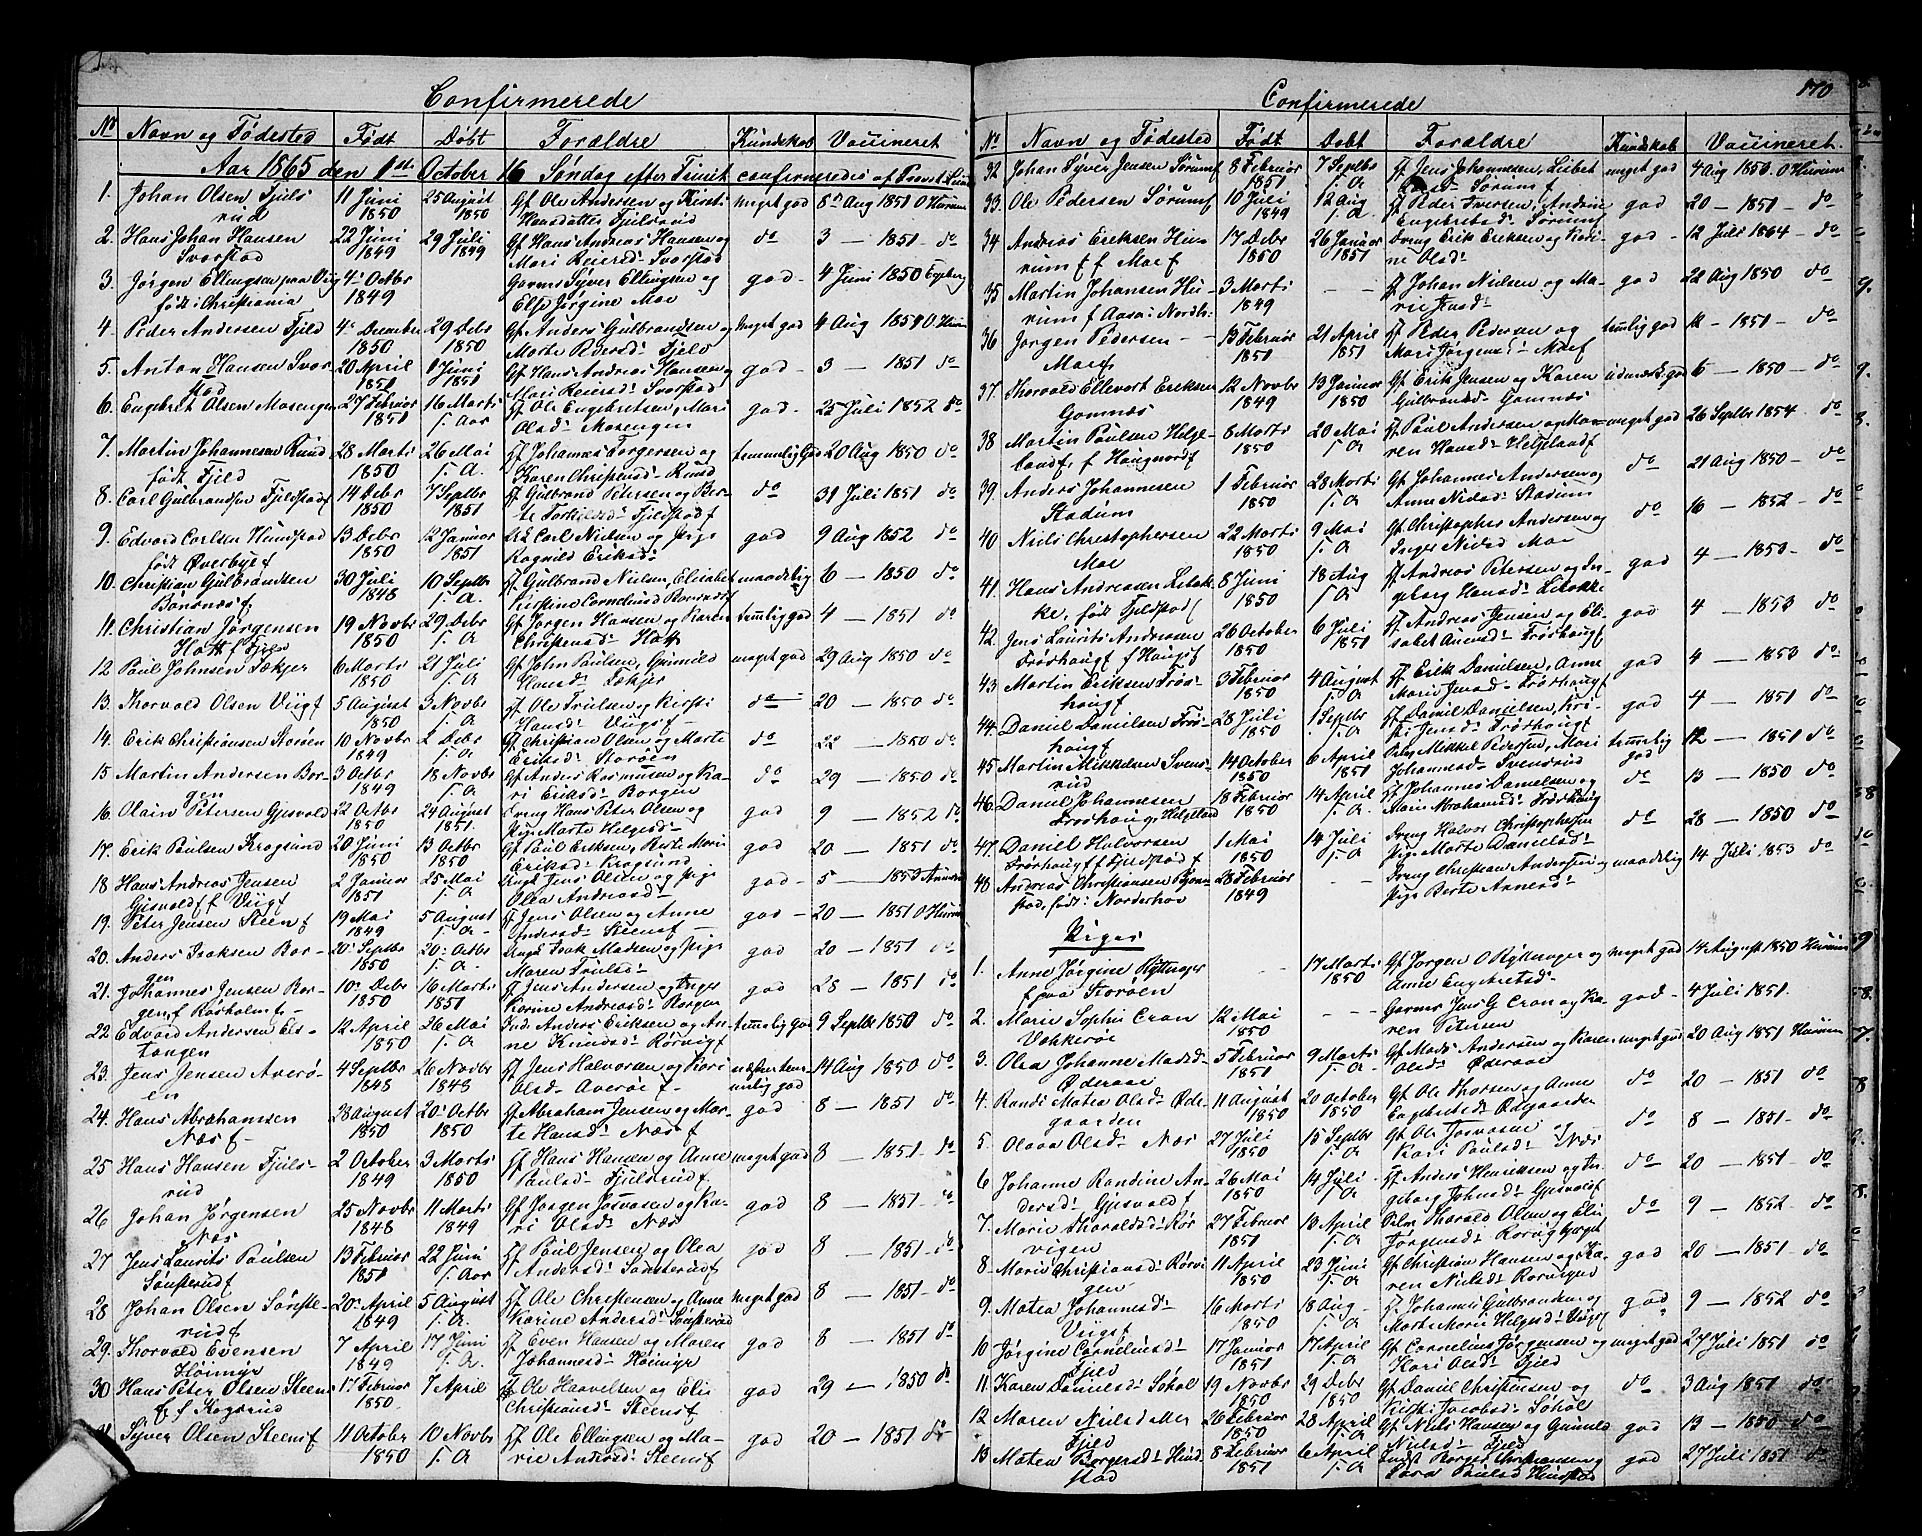 Confirmerede
No Navn og Födested Födt Döbt Forældre Kundskab Vaccineret
Aar 1865 den 1st October 16 Söndag efter Trinit confirmeredes af Provst
1. Johan Olsen Fjels 11 Juni 25 August Gf Ole Andersen og Kirsti meget god 8 Aug 1851 O Hurum
rud 1850 1850 Hansdatter Fjelsrud
2. Hans Johan Hansen 22 Juni 29 Juli Gf Hans Andreas Hansen og do 3 — 1851 do
Svorstad 1849 1849 Mari Svorstad
3. Jörgen Ellingsen paa Viig 4 Octbr Syver Ellingsen og god 4 Juni 1850
født i Christiania 1849 Else Jörgine Moe
4. Peder Andersen Fjeld 4 December 29 Debr Gf Anders Gulbrandsen og meget god 4 Aug 1851 O Hurum
1850 1850 Marte Fjeld
5. Anton Hansen Svor 20 April 1 Juni Gf Hans Andreas Hansen og god 3 — 1851 do
stad 1851 1851 Mari Svorstad
6. Engebret Olsen Mosengen 27 Februar 16 Marts Gf Ole Engebretsen, Mari god 25 Juli 1852 do
1851 s. Aar Olsd: Mosengen
7. Martin Johannesen Rund 28 Marts 26 Mai Gf Johannes Torgersen og temmelig god 20 Aug 1850 do
født Fjeld 1850 s. A. Karen Christensd: Rund
8. Carl Gulbrandsen Fjeldstad 14 Debr 7 Septbr Gf Gulbrand Petersen og Ber- do 31 Juli 1851 do
1850 1851 te Torkilsd: Fjeldstad
9. Edvard Carlsen Hundstad 13 Debr 12 Januar Carl Nielsen og Pige god 9 Aug 1852 do
født Överbye 1850 1851 Ragnild Eriksd:
10. Christian Gulbrandsen 30 Juli 10 Septbr Gf Gulbrand Nielsen, Elisabet maadelig 6 — 1850 do
Bönsnæs 1848 s. A. Kirstine Corneliusd
11. Christian Jørgensen 19 Novbr 29 Debr Gf Jørgen Hansen og Karen temlig god 4 — 1851 do
f. Fjeld 1850 s. A Christensd:
12 Paul Johnsen Sækjer 6 Marts 21 Juli Gf John Paulsen, Gunnild meget god 29 Aug 1850 do
1850 s. A Hansd: Sækjer
13. Thorvald Olsen Viig 5 August 3 Novbr Gf Ole Trulsen og Kirsti do 20 — 1850 do
1850 s. A Hansd: Viig
14. Erik Christiansen Storöen 10 Novbr 2 Debr Gf Christian Olsen og Marte do 22 — 1850 do
1849 s. A Eriksd: Storöen
15 Martin Andersen Bor- 3 Octbr 18 Novbr Gf Anders Rasmusen og Ka- do 29 — 1850 do
gen 1849 s. A ri Eriksd: Borgen
16. Olaus Petersen Gjesvold 22 Octbr 24 August Hans Peter Olsen og god 9 — 1852 do
1850 1851. Pige Marte Helgesd:
17. Erik Paulsen Krogsund 20 Juni 13 Octbr Gf Paul Eriksen, Marie god 20 — 1851 do
1850 1850 Eriksd: Krogsund
18 Hans Andreas Jensen 2 Januar 25 Mai Jens Olsen og Pige god 5 — 1853
Gjesvold f Viig 1851 s. A Olea Andreasd:
19. Peter Jensen Steen 19 Mai 5 August Gf Jens Olsen og Anne god 20 — 1851 O Hurum
1849 s. A. Andersd: Steens
20. Anders Isaksen Bor- 20 Septbr 20 Octbr Isak Madsen og Pige god 20 — 1851 do
gen 1850 s. A. Maren Trulsd:
21. Johannes Jensen Bor- 10 Debr 16 Marts Gf Jens Andersen og god 28 — 1851 do
gen, f Rösholm 1850 1851 Karine Andreasd: Borgen
22 Edvard Andersen Els- 12 April 26 Mai Anders Eriksen og An- temlig god 9 Septbr 1850 do
tangen 1850 s. A ne Knudsd: Rörvig
23. Jens Jensen Averö- 4 Septbr 26 Novbr Gf Jens Halvorsen og Kari næsten tem- 14 Aug 1850 do
en 1848 1848 Olsd: Averöe melig god
24. Hans Abrahamsen 28 August 20 Octbr Gf Abraham Jensen og Mar- god 8 — 1851 do
Næs 1850 1850 te Hansd: Næs
25 Hans Hansen Fjuls- 2 October 3 Marts Gf Hans Hansen og Anne meget god 8 — 1851 do
rud 1849 1850 Paulsd: Fjulsrud
26 Johan Jörgensen 25 Novbr 11 Marts Gf Jörgen Josvasen og Ka- god 8 — 1851 do
Næs 1848 1849 ri Olsd: Næs
27 Jens Laurits Paulsen 13 Februar 22 Juni Gf Paul Jensen og Olea god 8 — 1851 do
Sönsterud 1851 s. Aar Andersd: Sönsterud
28 Johan Olsen Sönste- 20 April 5 August Gf Ole Christensen og Anne meget god 8 — 1851 do
rud 1849 s. A. Karine Andersd: Sönsterud
29. Thorvald Evensen 7 April 17 Juni Gf Even Hansen og Maren god 8 — 1851 do
Höimyr 1849 s. A. Johannesd: Höimyr
30 Hans Peter Olsen Steens 17 Februar 7 April Ole Haavelsen og Elis god 29 — 1850 do
f Krogsrud 1850. Christiansd: Steens
31 Syver Olsen Steens 11 October 10 Novbr Gf Ole Ellingsen og Ma- god 20 — 1851 do
1850 s. A rie Andreasd: Steens
Confirmerede 170
No Navn og Födested Födt Döbt Forældre Kundskab Vaccineret
32 Johan Syver Jensen Sörum 8 Februar 7 Septbr Gf Jens Johannesen, Lisbet meget god 4 Aug 1850 O Hurum
1851 s. A Sörum
33. Ole Pedersen Sörum 10 Juli 12 Aug Gf Peder Iversen, Andrine god 20 — 1851 — do
1849 s. A. Engebretsd: Sörum
34 Andreas Eriksen Hu- 17 Debr 26 Januar Dreng Erik Eriksen og Kari- god 12 Juli 1864 — do
rum f Moe 1850 1851 ne Olsd:
35 Martin Johansen Hu- 3 Marts — — Gf Johan Nielsen og Ma- god 22 Aug 1850 do
rum f Aasa i Nordh: 1849 rie Jensd:
36 Jorgen Pedersen 13 Februar 21 April Gf Peder Pedersen og temlig god 12 — 1851 — do
Moe 1851 1851 Mari Jörgensd: Moe
37. Thorvald Ellevart Eriksen 12 Novbr 13 Januar Gf Erik Jensen og Karen udmærk. god 6 — 1850 — do
Gomnæs 1849 1850 Gulbrandsd: Gomnæs
38 Martin Paulsen Helge- 8 Marts 20 Mai Gf Paul Andersen og Ma- meget god 26 Septbr 1854 do
land, f Haugnord 1850 s. A ren Hansd: Helgeland
39. Anders Johannesen 1 Februar 28 Marts Gf Johannes Andersen og do 21 Aug 1850 — do
Stadum 1850 s. A Anne Nielsd: Stadum
40 Niels Christophersen 22 Marts 9 Mai Gf Christopher Andersen og do 16 — 1852 — do
Moe 1850 s. A Inger Nielsd Moe
41. Hans Andreasen Lebak- 8 Juni 18 Aug Gf Andreas Petersen og In- god 4 — 1850 — do
ke, født Fjeldstad 1850 s. A geborg Hansd:
42. Jens Laurits Andreasen 26 October 6 Juli Gf Andreas Jensen og Eli- god 4 — 1853 do
Frörhaug f Haugs 1850 1851 sabet Frörhaug
43 Martin Eriksen Frör- 3 Februar 4 August Gf Erik Danielsen, Anne god 4 — 1853 do
haug 1850 s. A. Marie Jensd: Frörhaug
44. Daniel Danielsen Frör- 28 Juli 1 Septbr Gf Daniel Danielsen, Kir- god 4 — 1851 do
haug 1850 s. A. sti Jensd: Frörhaug
45 Martin Mikkelsen Svens- 14 October 6 April Mikkel Pedersen, Mari temmelig 12 — 1851 do
rud 1850 1851 Johannesd: Svensrud god
46. Daniel Johannesen 18 Februar 14 April Gf Johannes Danielsen og do 13 — 1850 do
Frörhaug, Helgeland 1850 s. A. Marie Abrahamsd: Frörhaug
47. Daniel Halvorsen 1 Mai 14 Juli Dreng Halvor Christophersen do 28 — 1850 do
Frörhaug f Fjeldstad 1850 s. A Pige Marte Danielsd:
48 Andreas Christiansen 28 Februar — — Dreng Christian Andersen og maadelig 14 Juli 1853 do
stad, født: Norderhov 1849 Pige Berte Arnesd:
Piger
1. Anne Jörgine Rytterager — — 17 Marts Gf Jörgen O Rytterager og meget god 14 August 1850 Hurum
paa Storöen 1850 Anne Engebretsd:
2. Marie Sophie Cron 12 Mai — — Jens G Cron og Ka- god 4 Juli 1851.
Vakkeröe 1850 ren Petersen
3. Olea Johanne Madsd: 5 Februar 9 Marts Gf Mads Andersen og Karen meget god 20 Aug 1851 Hurum
Öderaae 1851 s. A. Olsd: Öderaae
4. Randi Matea Olsd: Öde- 11 August 20 October Gf Ole Thorsen og Anne do 20 — 1851 do
gaarden 1850 1850 Engebretsd: Ödegaarden
5. Olava Olsd: Næs 27 Juli 15 Septbr Gf Ole Josvasen og do 8 — 1851. do
1850 s. A Kari Paulsd: Næs
6 Johanne Randine An- 26 Mai 14 Juli Gf Anders Henriksen og In- do 20 — 1851 — do
dersd: Gjesvold 1850 s. A geborg Johnsd: Gjesvold
7. Marie Tharaldsd: Rör 27 Februar 10 April Tharald Olsen og Eli do 9 — 1852. do
vigen 1851 s. A Jörgensd: Rörvig
8. Marie Christiansd: Rörvi 11 April 23 Juni Gf Christian Hansen og Ka- god 20 — 1851 do
gen 1850 s. A ren Nielsd: Rörvigen
9. Matea Johannesd: 16 Marts 18 Aug Gf Johannes Gulbrandsen og god 9 — 1852 do
Viig 1850 s. A Marte Marie Helgesd: Viig
10 Jørgine Corneliusd: 17 Januar 17 April Gf Cornelius Jørgensen og meget god 27 Juli 1851 do
Fjeld 1851 s. A Kari Olsd: Fjeld
11 Karen Danielsd: Sohol 19 Novbr 29 Debr Gf Daniel Christensen og do 3 Aug 1851 do
1850 1850 Kirsti Jacobsd: Sohol
12 Maren Nielsd 26 Februar 28 April Gf Niels Hansen og Gunild god 13 — 1850 do
Fjeld 1850 s. A Nielsd: Fjeld
13 Matea Borgersd: Hund 8 Februar 6 April Borger Christiansen og god 27 Juli 1851 do
stad 1851 s. A Paulsd Hundstad